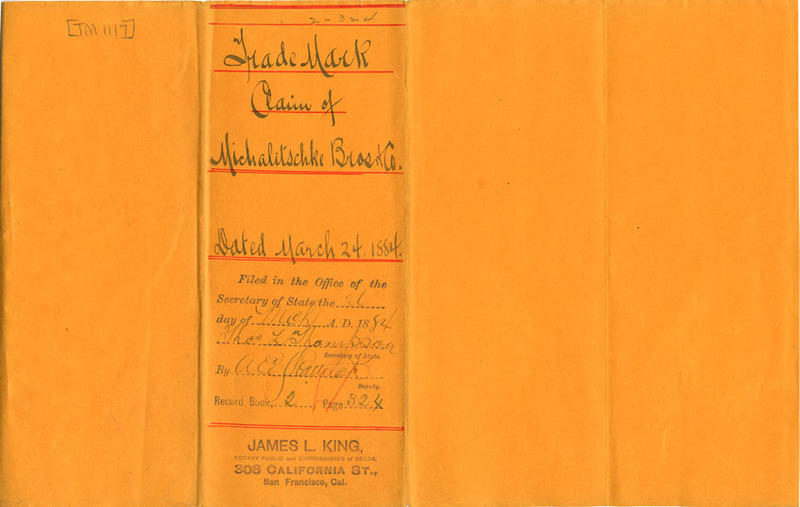 [TM 1117]
2-324
Trade Mark
Claim of
Michalitschke Bros & Co.
Dated March 24. 1884.
Filed in the Office of the
Secretary of State the 26
day of Mch A. D. 1884
Thos L Thompson
Secretary of State.
By
Deputy.
Record Book, 2, Page 324
JAMES L. KING,
NOTARY PUBLIC and COMMISSIONER of DEEDS,
308 CALIFORNIA ST.,
San Francisco, Cal.